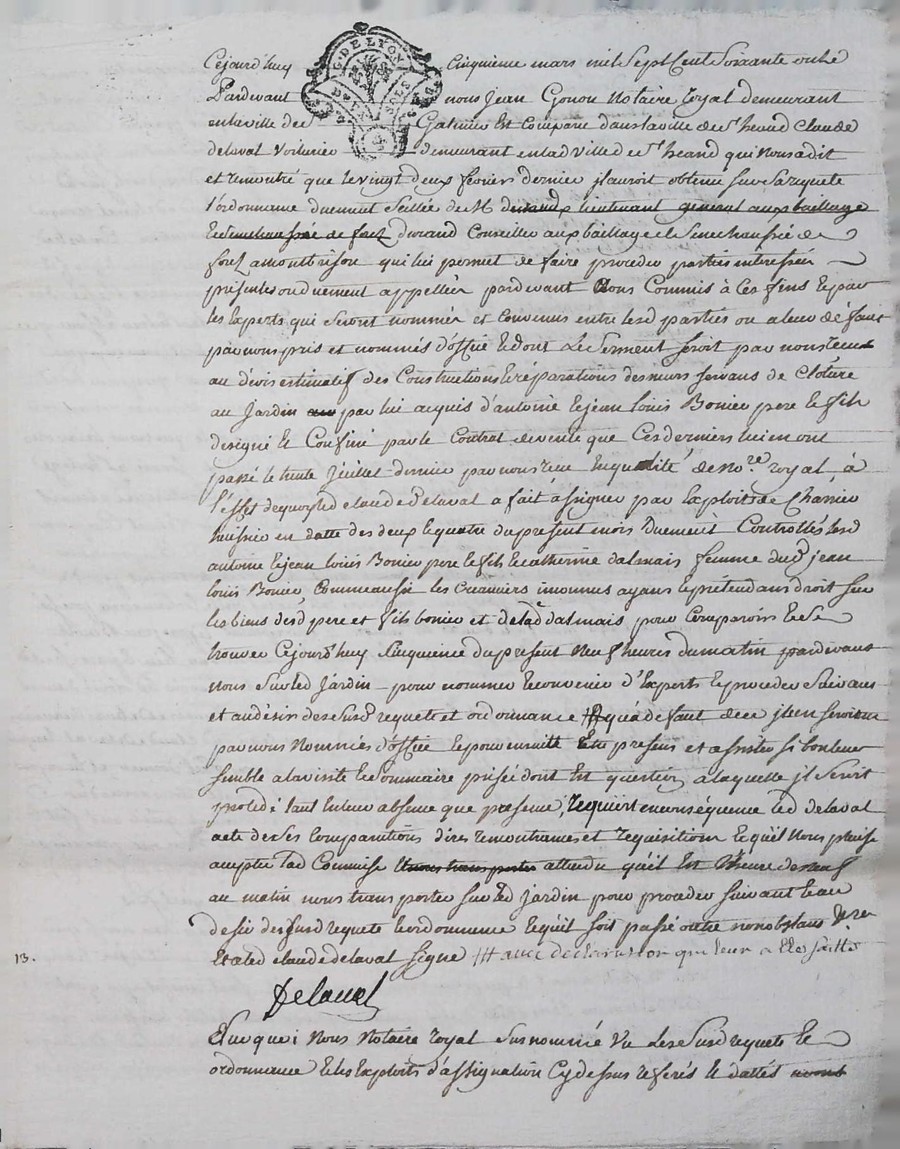 Cejourdhuy cinquieme mars mil sept cent soixante onze
G. DE LYON
Pardevant nous Jean Gonon Notaire royal demeurant
en la ville de St Galmier Est comparu dans la ville de St heand Claude
delaval voiturier demeurant en lad ville de St heand qui nous a dit
et remontré que le vingt deux fevrier dernier il auroit obtenu sur sa requete
l'ordonnance duement scellée de M durand lieutenant general aux bailliage
et senechaussée de forez durand Conseiller aux baillage et Senechaussée de
forez a montbrison qui lui permet de faire proceder parties interessées
presentes ou duement appellées pardevant Nous Commis à ces fins et par
les Experts qui seront nommés et convenus entre lesd parties ou a leur défaut
par nous pris et nommés d'office et dont le serment seroit par nous recu
au devis estimatif des Constructions et réparations des murs servans de Cloture
au Jardin par lui acquis d'antoine et jean Louis Bonier pere et fils
designé et Confiné par le Contrat de vente que ces derniers lui en ont
passé le trente Juillet dernier par nous recu en qualité de no.re royal, à
l'effet de quoy led claude delaval a fait assigner par Exploits de Charrier
huissier en datte des deux et quatre du present mois duement Controllés lesd
antoine et jean Louis Bonier pere et fils et catherine dalmais femme dud jean
Louis Bonier, comme aussi les creanciers inconnus ayans et prétendans droit sur
les biens desd pere et fils bonier et de lad dalmais, pour comparoir et se
trouver Cejourd'huy cinquieme du present neuf heures du matin pardevant
nous sur led Jardin pour nommer et convenir d'Experts et proceder suivant
et au désir des susd requete et ordonnance # qu'a defaut de ce il en seroient
par nous Nommés d'office et pour ensuite Etre presens et assister si bon leur
semble a la visite et sommaire prisée dont Est question a laquelle il seroit
procedé tant en leur absence que presence, requiert en conséquence led delaval
acte de ses Comparutions dires remontrances et requisitions et qu'il Nous plaise
accepter lad Commise et nous transporter attendu qu'il Est l'heure de neuf
au matin nous transporter sur led Jardin pour proceder suivant et au
desir des susd requete et ordonnance et qu'il soit passé outre nonobstant &.re
Et a led claude delaval signé # avec déclaration que leur a Eté faitte
13.
Delaval
Sur quoi Nous Notaire royal susnommé Vu les susd requete et
ordonnance et les Exploits d'assignation Cy dessus referés et dattés avons